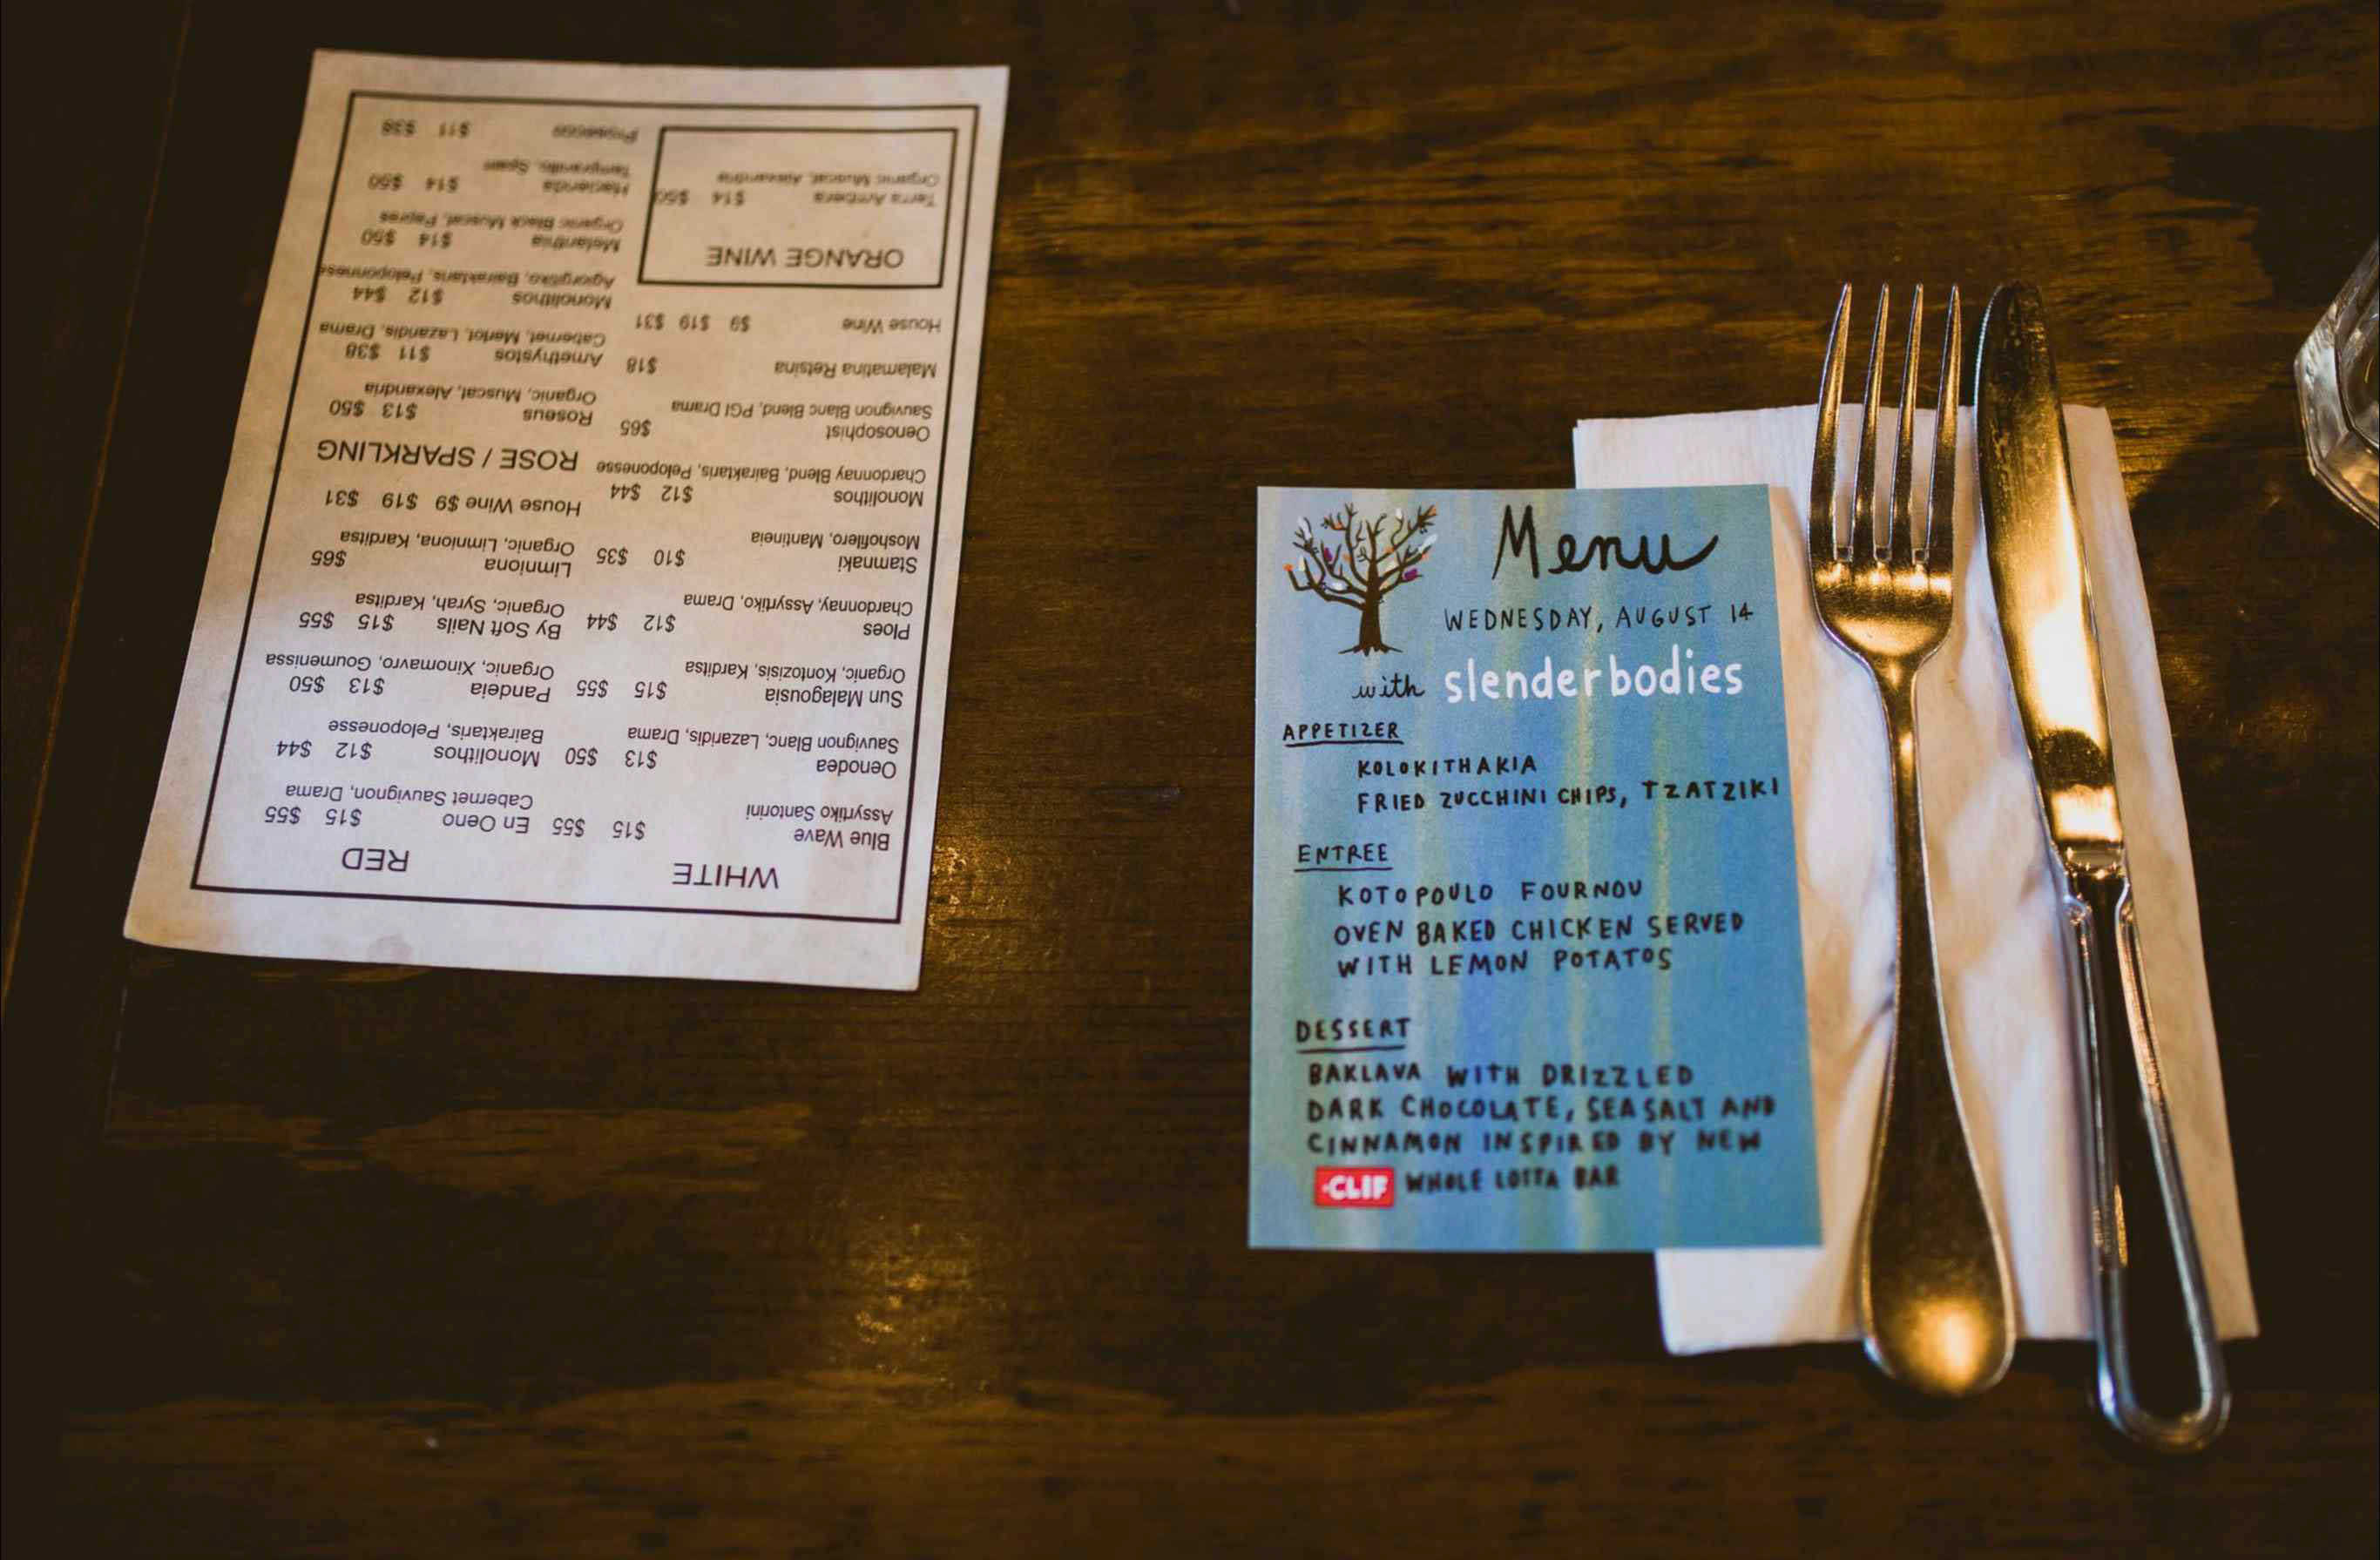 WHITE
Blue Wave $15 $55
Assyrtiko Santorini
Oenodea $13 $50
Sauvignon Blanc, Lazaridis, Drama
Sun Malagousia $15 $55
Organic, Kontozisis, Karditsa
Ploes $12 $44
Chardonnay, Assyrtiko, Drama
Stamnaki $10 $35
Moshofilero, Mantineia
Monolithos $12 $44
Chardonnay Blend, Bairaktaris, Peloponesse
Oenosophist $65
Sauvignon Blanc Blend, PGI Drama
Malamatina Retsina $18
House Wine $9 $19 $31
ORANGE WINE
Terra Ambera $14 $50
Organic Muscat, Alexandria
RED
En Oeno $15 $55
Cabernet Sauvignon, Drama
Monolithos $12 $44
Bairaktaris, Peloponesse
Pandeia $13 $50
Organic, Xinomavro, Goumenissa
By Soft Nails $15 $55
Organic, Syrah, Karditsa
Limniona $65
Organic, Limniona, Karditsa
House Wine $9 $19 $31
ROSE / SPARKLING
Roseus $13 $50
Organic, Muscat, Alexandria
Amethystos $11 $38
Cabernet, Merlot, Lazaridis, Drama
Monolithos $12 $44
Agiorgitiko, Bairaktaris, Peloponnese
Melanthia $14 $50
Organic Black Muscat,
Hacienda $14 $50
Tempranillo, Spain
Prosecco $11 $38
Menu
WEDNESDAY, AUGUST 14
with slenderbodies
APPETIZER
KOLOKITHAKIA
FRIED ZUCCHINI CHIPS, TZATZIKI
ENTREE
KOTOPOULO FOURNOU
OVEN BAKED CHICKEN SERVED
WITH LEMON POTATOS
DESSERT
BAKLAVA WITH DRIZZLED
DARK CHOCOLATE, SEA SALT AND
CINNAMON INSPIRED BY NEW
CLIF WHOLE LOTTA BAR